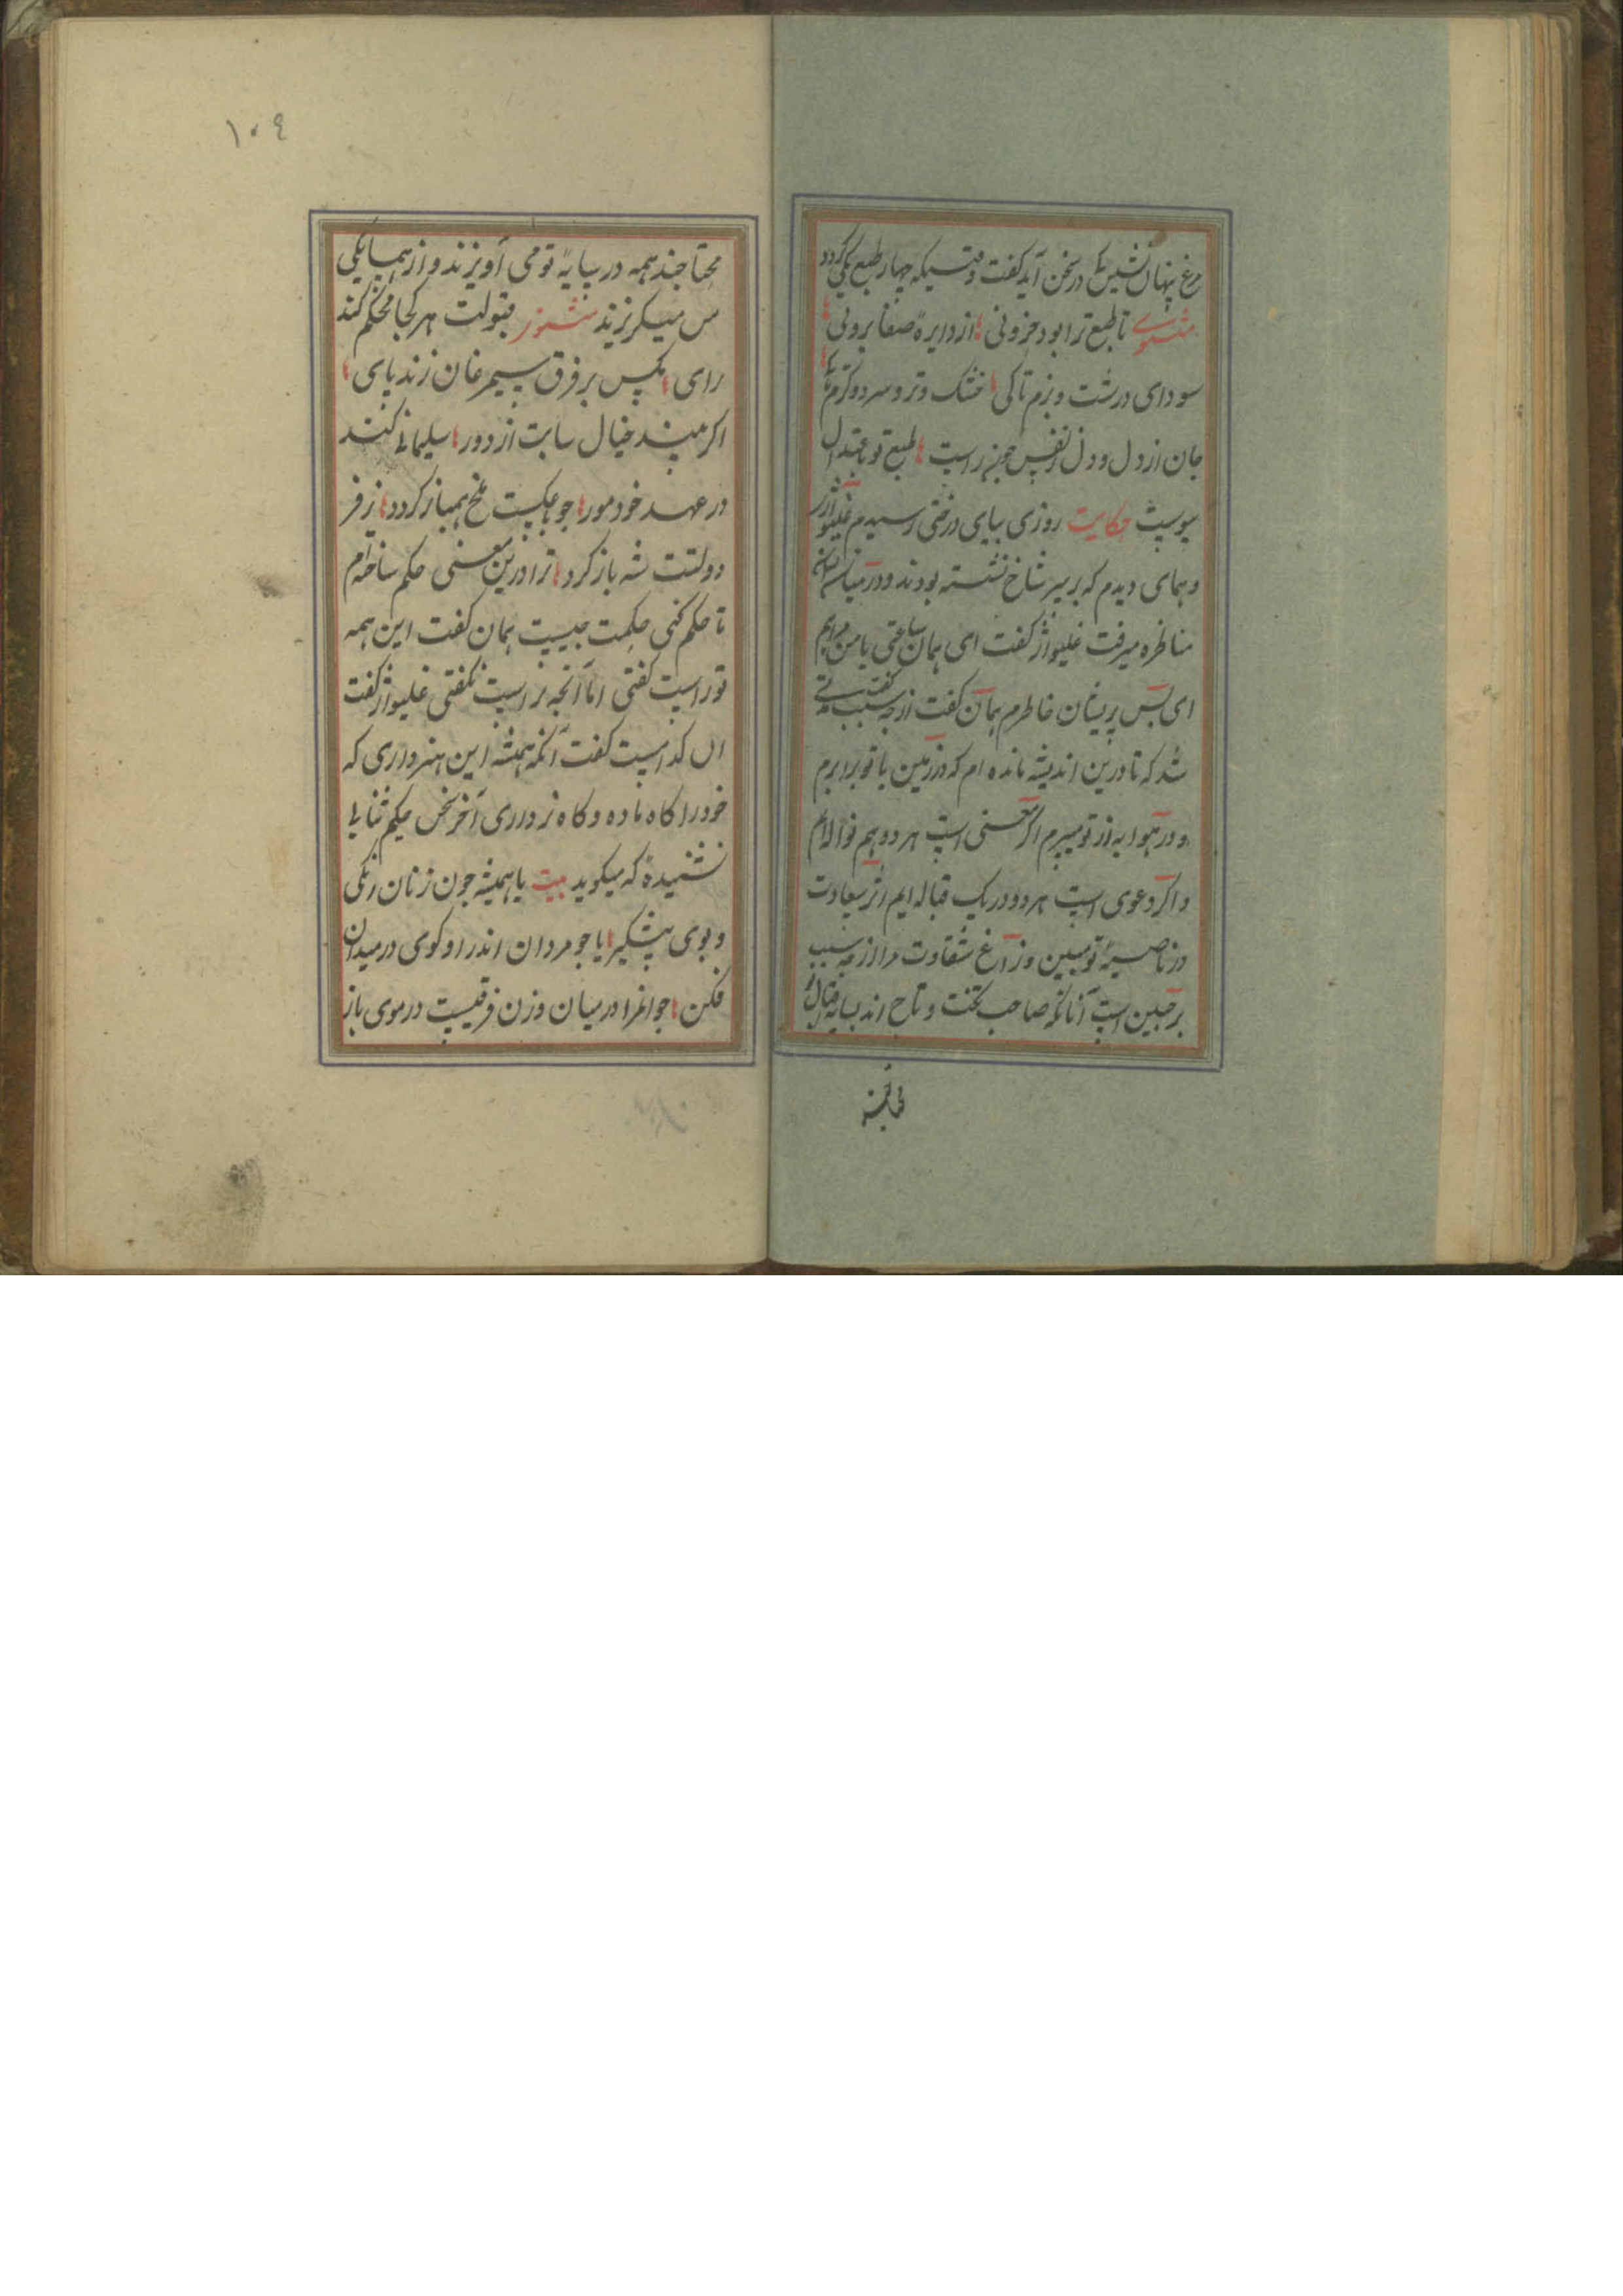 مرغ پنهان نشین کی در سخن آید گفت وقتیکه چهار طبع یکی گردد
مثنوی تا طبع ترا بود فزونی از دایره صفا برونی
سودای درشت و نرم تا کی خشک و تر و سرد و گرم تا کی
جان از دل و دل نفس جزیراست طبع تو باعتدال
پیوست حکایت روزی بپای درختی رسیدم غلیواژ
و همای دیدم که بر سر شاخ نشسته بودند و در میان ایشان
مناظره میرفت غلیواژ گفت ای همان ساعتی با من
ای بس پریشان خاطرم همان گفت از چه سبب گفت مدتی
شد که تا درین اندیشه مانده ام که در زمین با تو برابرم
و در هوا به از تو میپرم اگر معنی است هر دو هم نوالایم
و اگر دعوی است هر دو در یک قباله ایم اثر سعادت
در ناصیهٔ تو مبین و زاغ شقاوت مرا از چه سبب
بر جبین است آنانکه صاحب تخت و تاج اند بسایه فال تو
محتاجند
۱۰٤
محتاجند همه در سایهٔ تو می آویزند و از همسایگی
من میگریزند مثنوی قبولت هر کجا محکم کند
رای مگس بر فرق سیمرغان زند پای
اگر بیند خیال سایت از دور سلیمانی کند
در عهد خود مور چو با عکست ملخ همباز گردد ز فر
دولتت شه باز گردد ترا درین معنی حکم ساخته ام
تا حکم کنی حکمت چیست همان گفت این همه
تو راست گفتی اما آنچه نراست نگفتی غلیواژ گفت
آن کدامست گفت آنکه همیشه این هنر داری که
خود را گاه ماده و گاه نر داری آخر سخن حکیم ثنایی
نشنیدهٔ که میگوید بیت یا همیشه چون زنان رنگی
و بوی پیش گیر یا چو مردان اندر آ و گوی در میدان
فکن جوانمردا در میان وزن فرقیست در موی باز